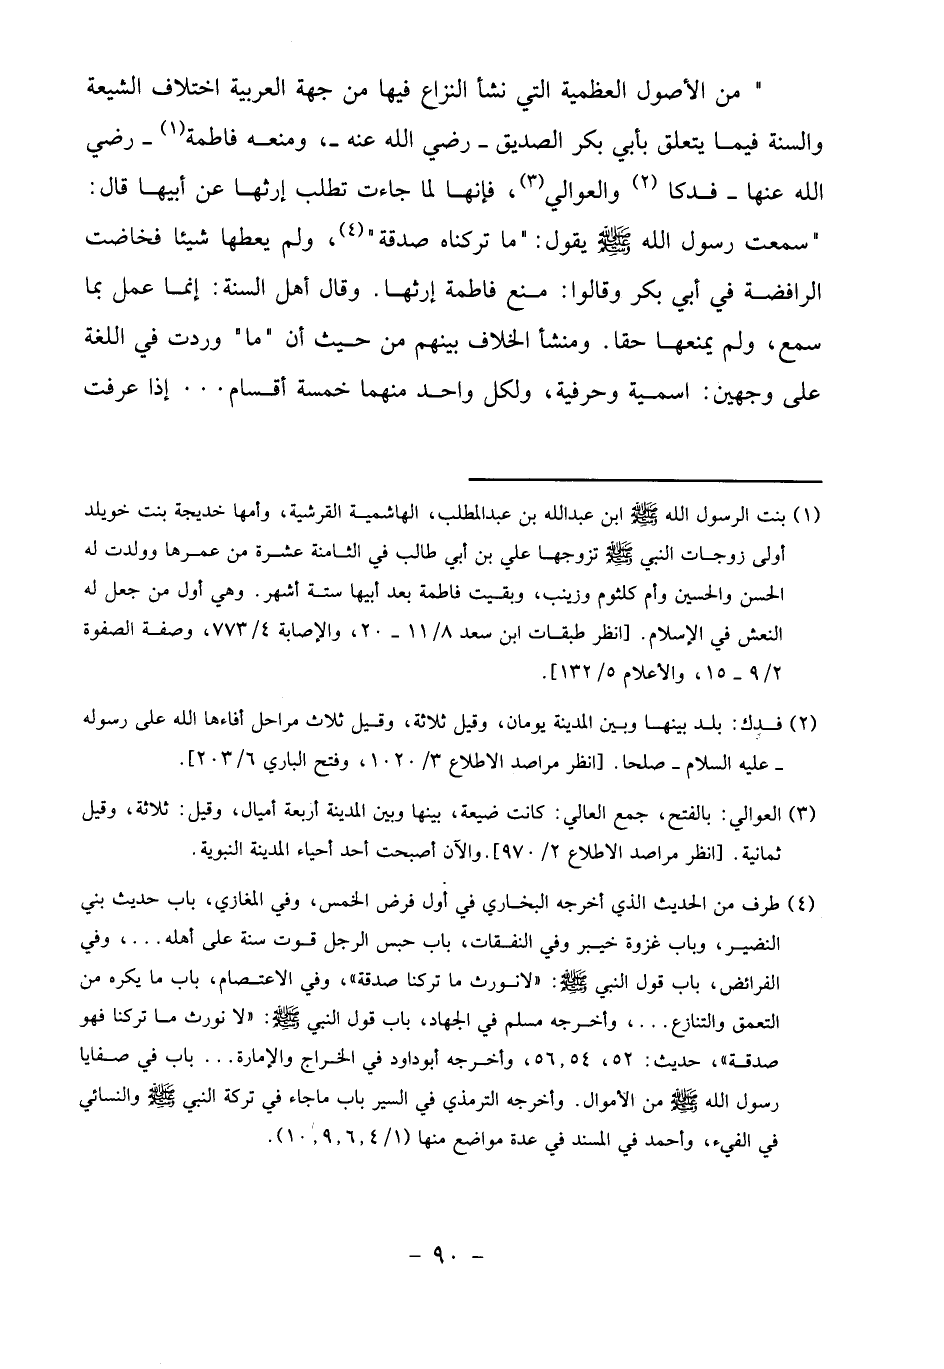 " من الأصول العظمية التي نشأ النزاع فيها من جهة العربية اختلاف الشيعة
والسنة فيمـا يتعلق بأبي بكر الصديق ـ رضي الله عنه ـ، ومنعـه فاطمة(١) ـ رضي
الله عنها ـ فـدكا (٢) والعوالي(٣)، فإنهـا لما جاءت تطلب إرثهـا عن أبيهـا قال:
"سمعت رسول الله ﷺ يقول: "ما تركناه صدقة"(٤)، ولم يعطها شيئا فخاضت
الرافضـة في أبي بكر وقالوا: مـنع فاطمة إرثهـا. وقال أهل السنة: إنمـا عمل بما
سمع، ولم يمنعهـا حقا. ومنشأ الخلاف بينهم من حـيث أن "ما" وردت في اللغة
على وجهين: اسمـية وحرفية، ولكل واحـد منهما خمسة أقـسام... إذا عرفت
(١) بنت الرسول الله ﷺ ابن عبدالله بن عبدالمطلب، الهاشميـة القرشية، وأمها خديجة بنت خويلد
أولى زوجـات النبي ﷺ تزوجهـا علي بن أبي طالب في الثـامنة عشـرة من عمـرها وولدت له
الحسن والحسين وأم كلثوم وزينب، وبقـيت فاطمة بعد أبيها ستـة أشهر. وهي أول من جعل له
النعش في الإسلام. [انظر طبقـات ابن سعد ١١/٨ ـ ٢٠، والإصابة ٧٧٣/٤، وصفـة الصفوة
٩/٢ ـ ١٥، والأعلام ١٣٢/٥].
(٢) فـدك: بلـد بينهـا وبين المدينة يومان، وقيل ثلاثة، وقـيل ثلاث مراحل أفاءها الله على رسوله
ـ عليه السلام ـ صلحا. [انظر مراصد الاطلاع ١٠٢٠/٣، وفتح الباري ٢٠٣/٦].
(٣) العوالي: بالفتح، جمع العالي: كانت ضيعة، بينها وبين المدينة أربعة أميال، وقيل: ثلاثة، وقيل
ثمانية. [انظر مراصد الاطلاع ٩٧٠/٢].والآن أصبحت أحد أحياء المدينة النبوية.
(٤) طرف من الحديث الذي أخرجه البخـاري في أول فرض الخمس، وفي المغازي، باب حديث بني
النضيـر، وباب غزوة خيـبر وفي النفـقات، باب حبس الرجل قـوت سنة على أهله...، وفي
الفرائض، باب قول النبي ﷺ: «لانـورث ما تركنا صدقة»، وفي الاعتـصام، باب ما يكره من
التعمق والتنازع...، وأخـرجه مسلم في الجهاد، باب قول النبي ﷺ: «لا نورث مـا تركنا فهو
صدقـة»، حديث: ٥٢، ٥٤, ٥٦، وأخـرجه أبوداود في الخـراج والإمارة... باب في صـفايا
رسول الله ﷺ من الأموال. وأخرجه الترمذي في السير باب ماجاء في تركة النبي ﷺ والنسائي
في الفيء، وأحمد في المسند في عدة مواضع منها (٤/١, ٦, ٩, ١٠).
- ٩٠ -